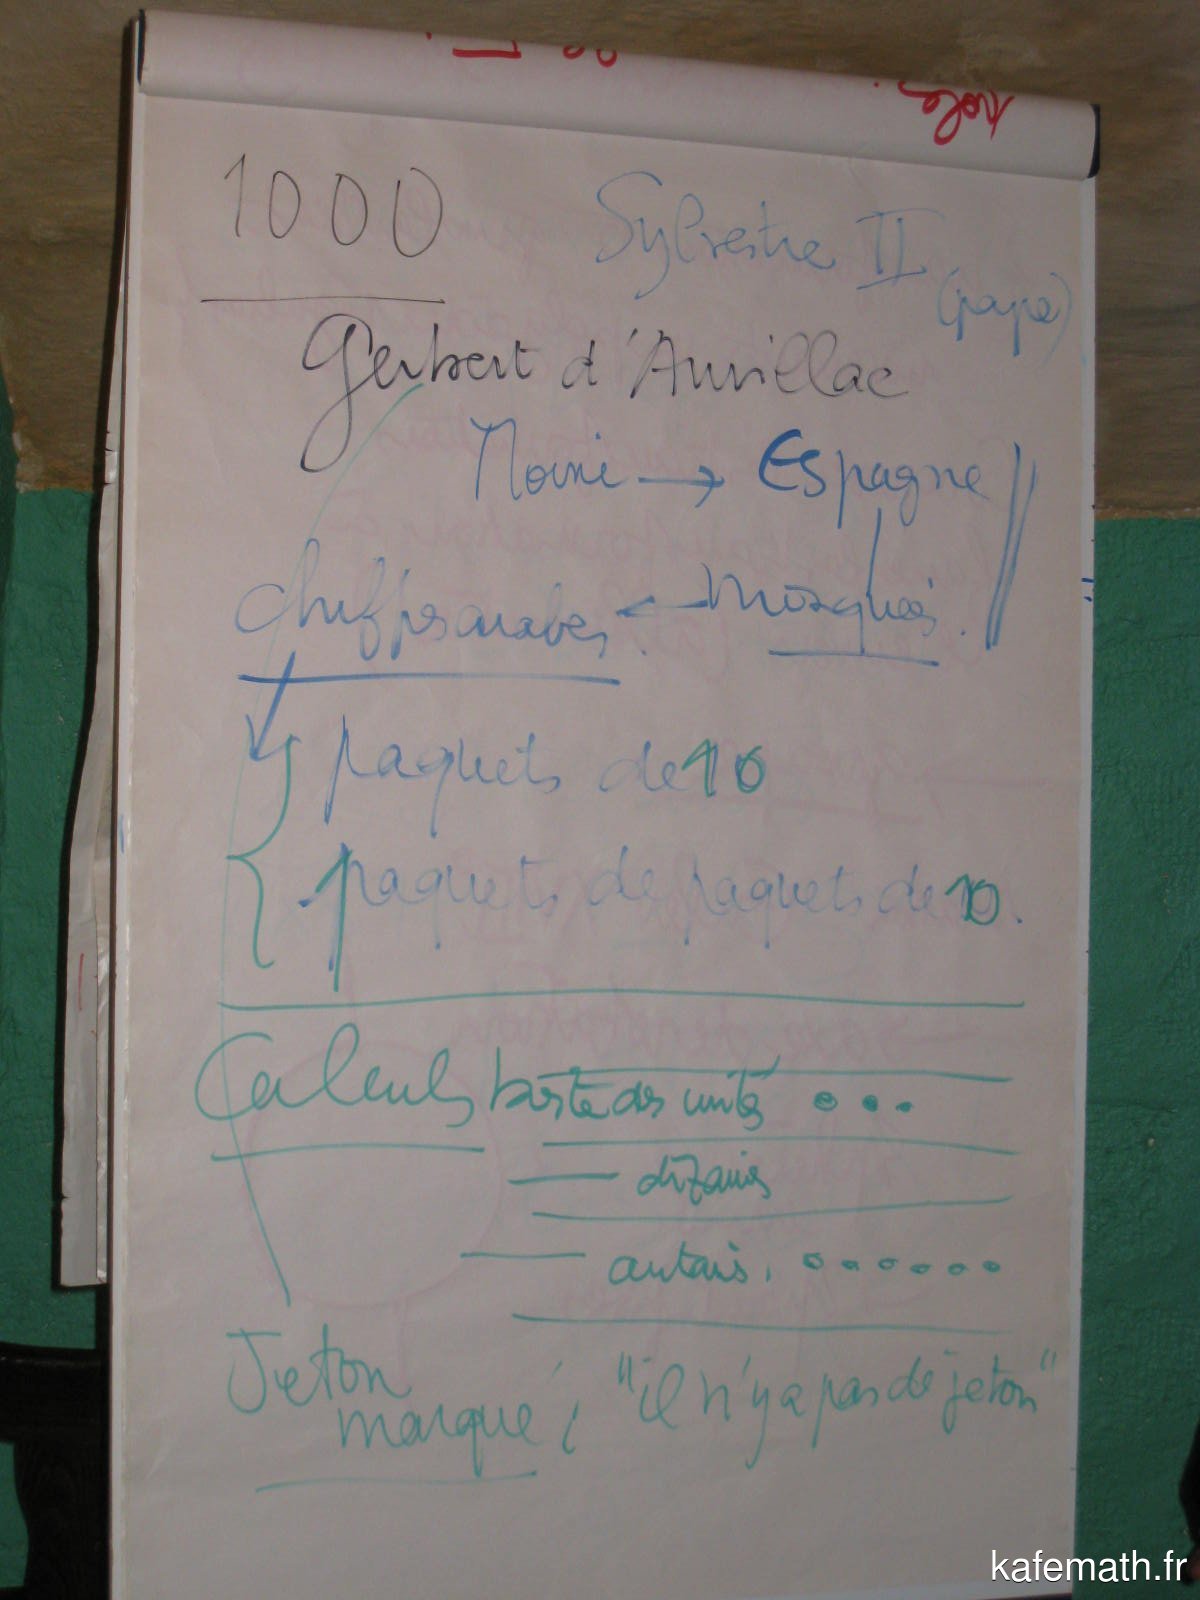 1000
Sylvestre II
(pape)
Gerbert d'Aurillac
Moine → Espagne
chiffres arabes ← Mosquées.
paquets de 10
paquets de paquets de 10.
Calculs boîte des unités
— dizaines
— centaines.
Jeton
marqué : "il n'y a pas de jeton"
kafemath.fr